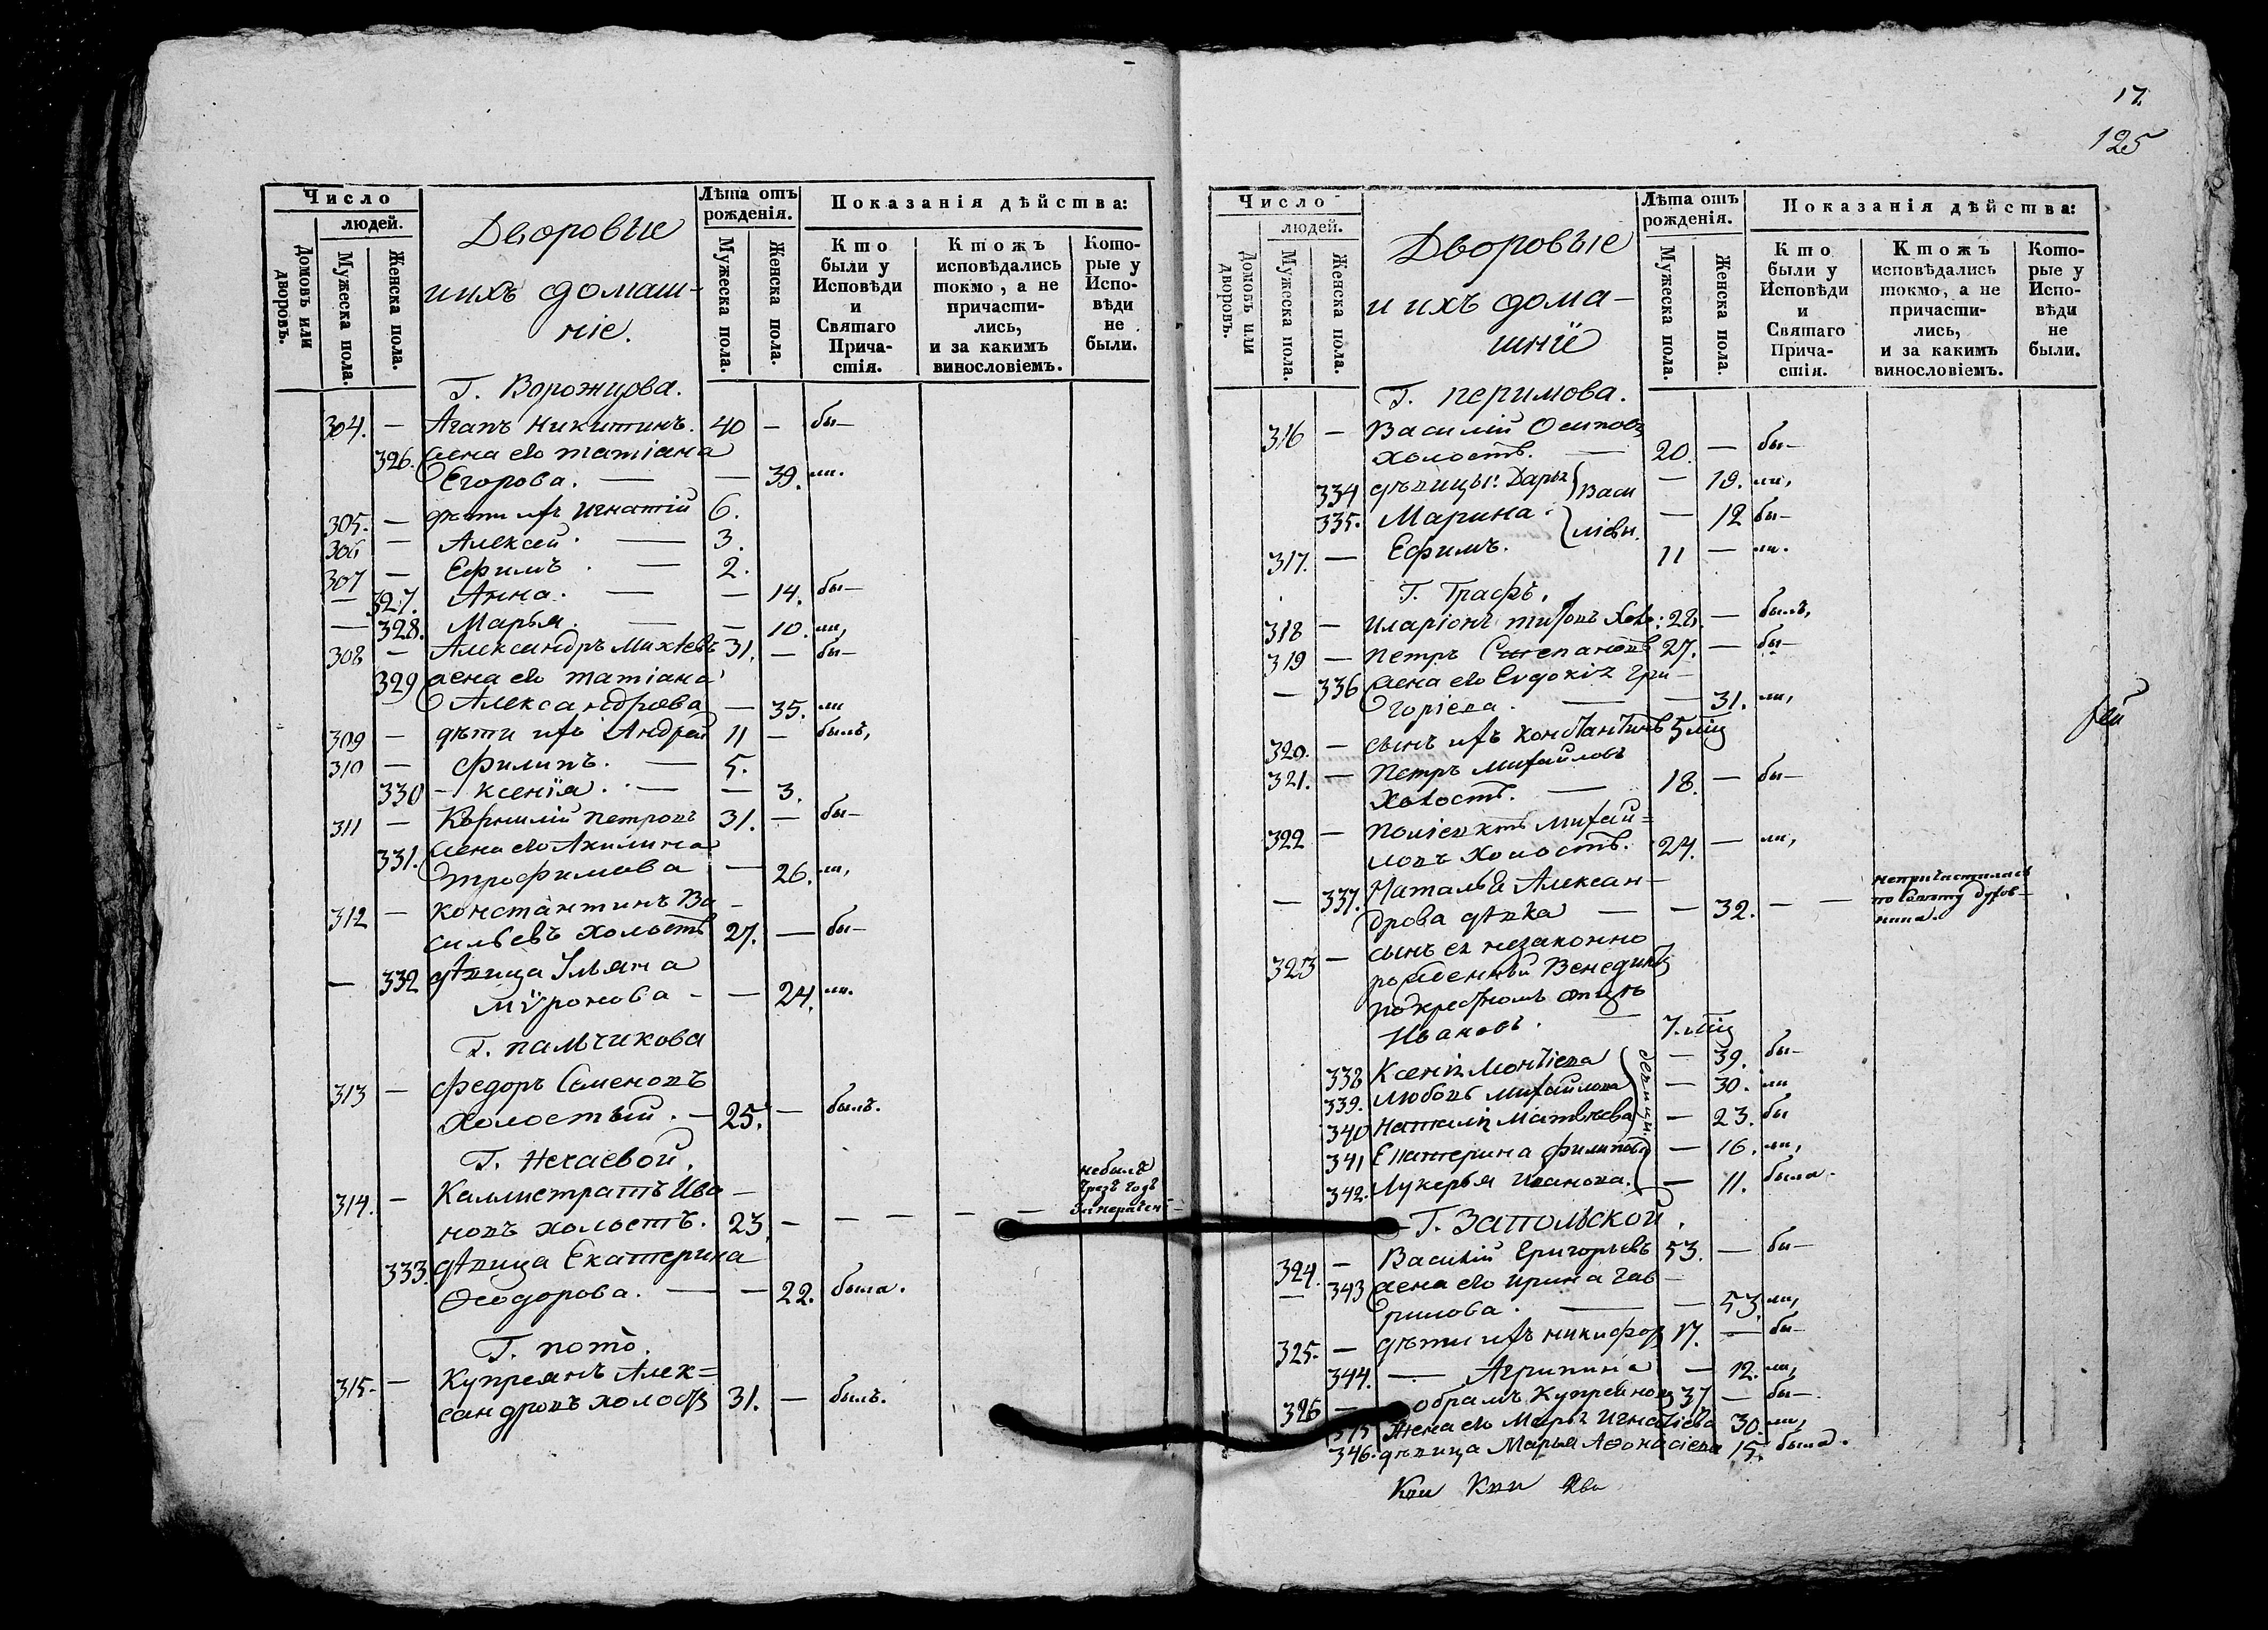 Число
людей.
Домовъ или дворовъ.
Мужеска пола.
Женска пола.
Дворовые
и ихъ домаш-
ніе.
Лѣта отъ рожденія.
Мужеска пола.
Женска пола.
Показанія дѣйства:
Кто были у Исповѣди и Святаго Прича-стія.
Ктожъ исповѣдались токмо, а не причасти-лись, и за какимъ винословіемъ.
Кото-рые у Испо-вѣди не были.
Г. Ворожцова.
304. — Агапъ Никитинъ. 40 — бы—
326. жена его татіана
Егорова. — — 39. ли.
305. — дѣти ихъ Игнатій 6.
306 — Алексей. — 3.
307 — Ефимъ. — 2.
— 327. Анна. — — 14. бы—
— 328. Марья. — — 10. ли,
308 — Александръ Михѣевъ 31. — бы—
329 жена его татіана
Александрова — 35. ли
309 — дѣти ихъ Андрей 11 — былъ,
310 — Филипъ. — 5.
330 — Ксенія. — — 3.
311 — Корнилій Петровъ 31. — бы—
331. жена его Акилина
Трофимова — 26. ли,
312 — Константинъ Ва-
сильевъ холостъ 27. — бы—
— 332 дѣвица Ульяна
Мѵронова - — 24. ли.
Г. Пальчикова
313 — Федоръ Семеновъ
холостый. — 25. — былъ.
Г. Нечаевой.
314. — Каллистратъ Ива-
новъ холостъ. 23. — — — — — небылъ чрезъ годъ
333. дѣвица Екатерина
Ѳеодорова. — — 22. была.
Г. Пото.
315. — Купреянъ Алек=
сандровъ холостъ 31. — былъ.
17.
125
Число
людей.
Домовъ или дворовъ.
Мужеска пола.
Женска пола.
Дворовые
и ихъ дома-
шнії
Лѣта отъ рожденія.
Мужеска пола.
Женска пола.
Показанія дѣйства:
Кто были у Исповѣди и Святаго Прича-стія.
Ктожъ исповѣдались токмо, а не причасти-лись, и за какимъ винословіемъ.
Кото-рые у Испо-вѣди не были.
Г. Перимова.
316 — Василій Осиповъ
холостъ. — 20. — бы—
334 дѣвицы: Дарья } Васи — 19. ли,
335. Марина. } ліевы. — 12 бы—
317. — Ефимъ. 11 — ли.
Г. Графъ.
318 — Иларіонъ тихонъ Холо: 28. — былъ,
319 — Петръ Степановъ 27. — бы—
— 336 жена его Евдокія Гри-
горіева. — — 31. ли,
320. — сынъ ихъ Константинъ 5 мѣц
321. — Петръ Михайловъ
Холостъ. — 18. — бы—
322 — Поліевктъ Михай=
ловъ холостъ. 24. — ли,
— 337. Наталья Алексан-
дрова дѣвка — — 32. — — непричастилась по совѣту духов-ника.
323 — сынъ ея незаконно
рожденный Венедиктъ
по крестномъ отцѣ
Ивановъ. — 7. мѣц
338 Ксенія Монтіева — 39. бы—
339. Любовь Михайлова — 30. ли
340 Наталія Матвѣева — 23. бы
341 Екатерина Филипова — 16. ли,
342. Лукерья Иванова. — 11. была.
дѣвицы.
Г. Запольской.
324. — Василій Григорьевъ 53. — бы—
— 343 жена его Ирина Гав-
рилова. — — 53. ли,
325. — дѣти ихъ Никифоръ 17. — бы—
344. — Агрипина — 12. ли,
326 — Купреяновъ 37 — бы—
345 Жена его Марья Игнатіева 30. ли,
346. дѣвица Марья Аѳонасіева 15. была.